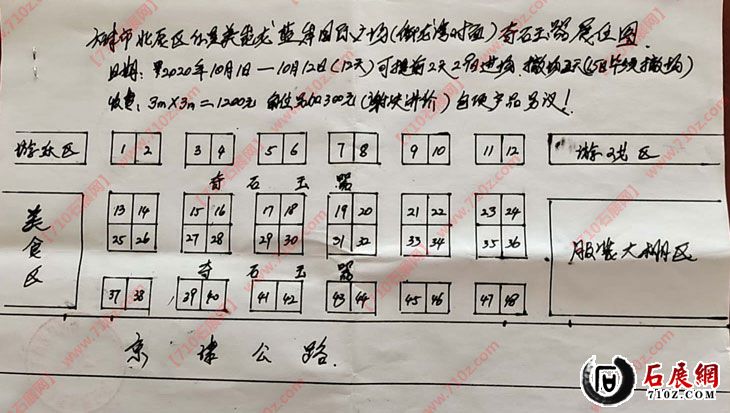 天津市北辰区红星美凯龙蓝岸国际广场(御龙湾对面)奇石玉器展位图.
日期:2020年10月1日—10月12日(12天)可提前2天29日进场
收费:3m×3m=1200元 角位另加300元(谢绝讲价)包项产品另议!
游玩区 1 2 3 4 5 6 7 8 9 10 11 12 游戏区
奇石玉器
美食区
13 14 15 16 17 18 19 20 21 22 23 24
25 26 27 28 29 30 31 32 33 34 35 36
服装大棚区
奇石玉器
37 38 39 40 41 42 43 44 45 46 47 48
京津公路
石展網
710z.com
【710石展网】www.710z.com